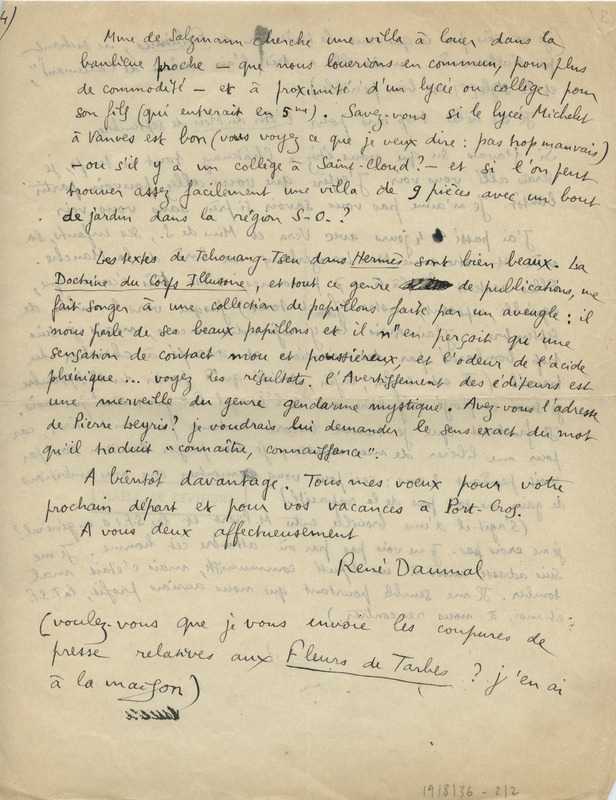 4)
Mme de Salzmann cherche une villa à louer dans la
banlieue proche – que nous louerions en commun, pour plus
de commodité – et à proximité d'un lycée ou collège pour
son fils (qui entrerait en 5me). Savez-vous si le lycée Michelet
à Vanves est bon (vous voyez ce que je veux dire : pas trop mauvais)
– ou s'il y a un collège à Saint-Cloud? – et si l'on peut
trouver assez facilement une villa de 9 pièces avec un bout
de jardin dans la région S-O.?
Les textes de Tchouang-Tseu dans Hermès sont bien beaux. La
Doctrine du Corps Illusoire, et tout ce genre de publications, me
fait songer à une collection de papillons faite par un aveugle : il
nous parle de ses beaux papillons et il n'en perçoit qu'une
sensation de contact mou et poussiéreux, et l'odeur de l'acide
phénique... voyez les résultats. l'Avertissement des éditeurs est
une merveille du genre gendarme mystique. Avez-vous l'adresse
de Pierre Leyris? je voudrais lui demander le sens exact du mot
qu'il traduit "connaître, connaissance".
A bientôt davantage. Tous mes voeux pour votre
prochain départ et pour vos vacances à Port-Cros.
A vous deux affectueusement
René Daumal
(voulez-vous que je vous envoie les coupures de
presse relatives aux Fleurs de Tarbes ? j'en ai
à la maison)
19/8/36 - 2/2